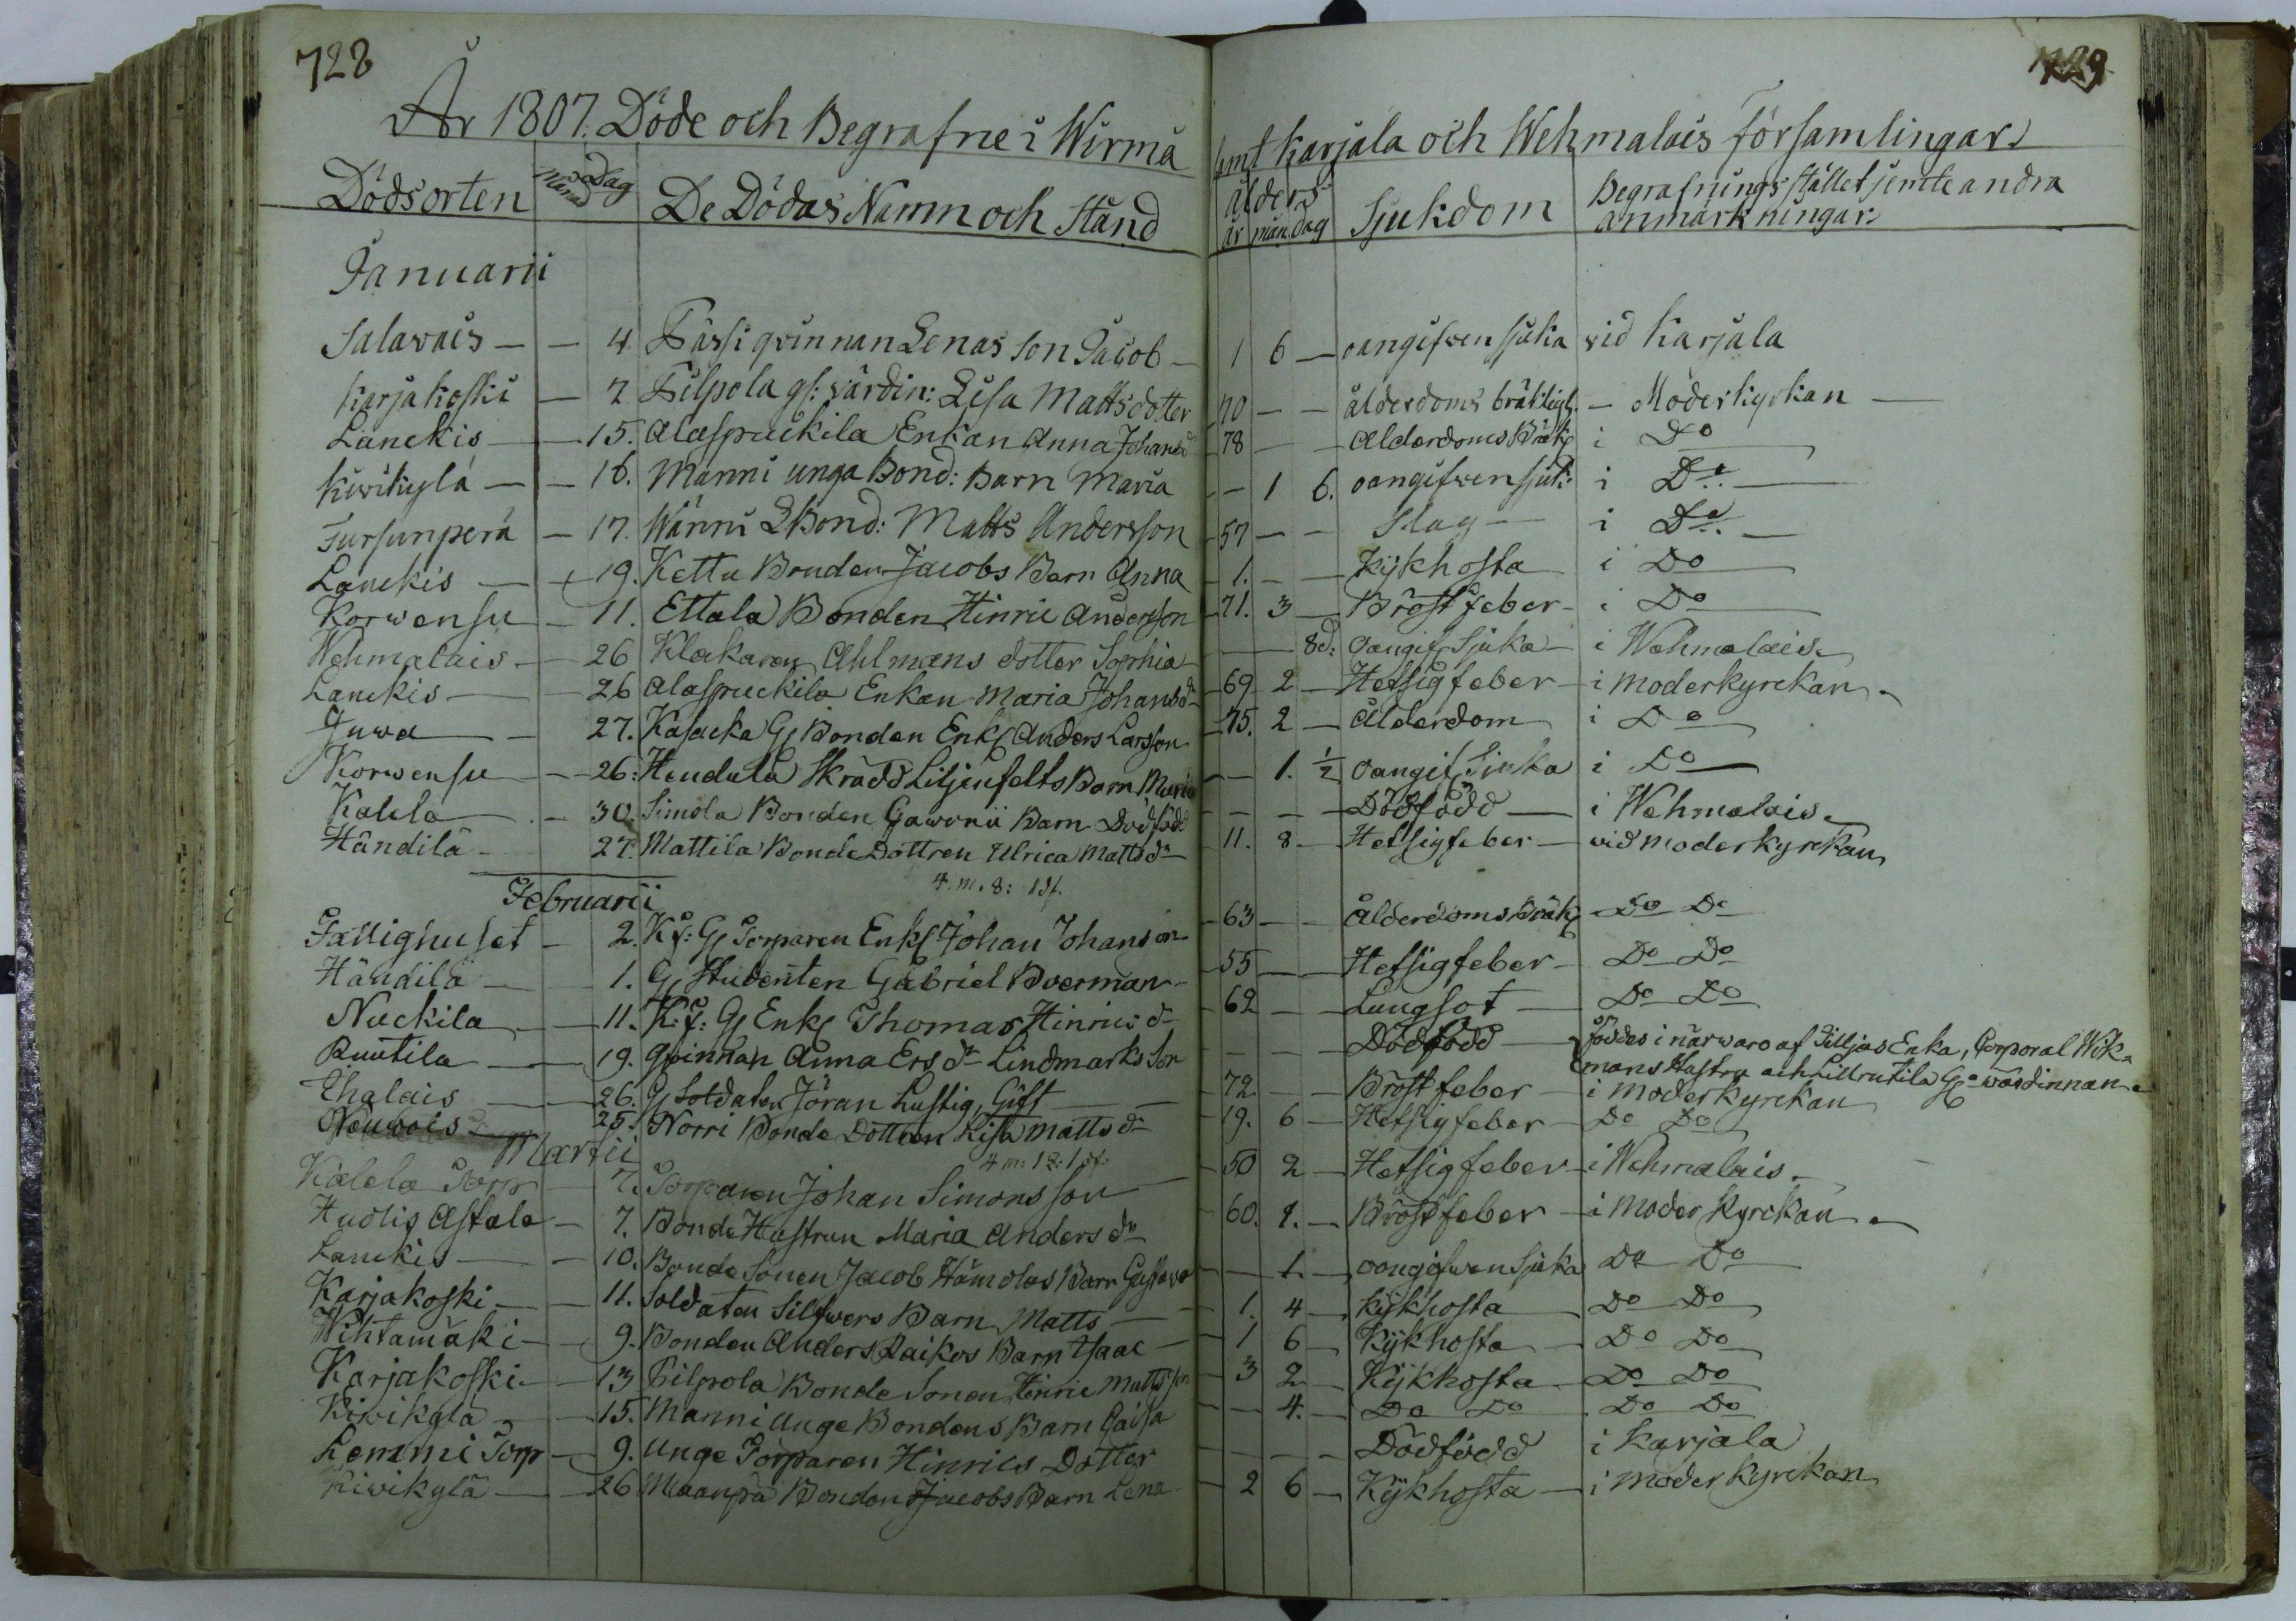 728
729
År 1807. Döde och Begrafne i Wirmå samt Karjala och Wehmalais församlingar
Dödsorten månad dag De Dödas Namn och Stånd ålders år mån dag Sjukdom Begrafnings stället jemte andra anmärkningar
Januarii
Salavais — — 4 Pässi qvinnan Lenas son Jacob — 1 6 — oangifven sjuka vid Karjala
Karjakoski — 7 Filpola gl: värdin: Lisa Mattsdotter 70 — — ålderdoms bräkligh. — Moderkyrkan —
Lanckis — 15. Alaspruckila Enkan Anna Johansd 78 — — Alderdoms Bräk i Do
Kiwikylä — — 16. Manni unga Bond: Barn Maria — 1 6. oangifven sjuk: i Do —
Tursunperä — 17. Wänni LBond: Matts Andersson 57 — — Slag — i Do —
Lanckis — 19. Kettu Bonden Jacobs Barn Anna 1. — — Kijkhosta i Do
Korwensu — 11. Ettala Bonden Hinric Andersson 71. 3 — Bröst feber — i Do
Wehmalais — 26 Klakaren Ahlmans dotter Sophia — 8d: oangif Sjuka — i Wehmalais
Lanckis — 26 Alaspruckila Enkan Maria Johansdr 69 2 — Hetsigfeber — i moderkyrckan
Juwa — 27. Kasacka Gl Bonden Enkl Anders Larsson 75. 2 — Ålderdom i Do
Korwensu — 26: Hendula Skrädd Liljenfelts Barn Maria — 1. ½ oangif Sjuka i Do
Kalela — 30. Simola Bonden Gawrii Barn Dödfödd — — — Dödfödd — i Wehmalais
Händilä — 27. Mattila Bonde Dottren Ulrica Mattsdr 11. 8 — Hetsigfeber — vid moderkyrckan
4. m. 8: 1 df.
Februarii
Fattighuset — 2. Kf: Gl Torparen Enkl Johan Johanson 63 — — Ålderdoms Bräk Do Do
Händilä — 1. Gl Studenten Gabriel Boerman 55 — — Hetsigfeber — Do Do
Nuckila — 11. K: f: Gl Enkl Thomas Hinricsdr 62 — — Lungsot — Do Do
Ruutila — 19. Qvinnan Anna Ersdr Lindmarks Son — — — Dödfödd — föddes i närwaro af Silljas Enka, Corporal Wik-
mans Hustru och Lillrutila Gla wärdinnan
Ehalais — 26. Gl Soldaten Jöran Lustig, Gift 72 — — Bröst feber — i moderkyrckan
Nouwois — 25. Norri Bonde Dottren Lisa Mattsdr 19. 6 — Hetsigfeber — Do Do
Martii
Kalela Torp 7. Torparen Johan Simonsson — 50 2 — Hetsigfeber — i Wehmalais
Hudis Astala — 7. Bonde Hustrun Maria Andersdr 60. 1. — Bröst feber — i moder kyrckan
Lanckis — 10. Bonde Sonen Jacob Hämolas Barn Gustava — 1. — oangifwen Sjuka Do Do
Karjakoski — 11. Soldaten Silfwers Barn Matts — 1. 4 — Kijkhosta Do Do
Wihtamäki — 9. Bonden Anders Raikos Barn Isaac — 1 6 — Kijkhosta — Do Do
Karjakoski — 13 Filpola Bonde Sonen Hinric Mattsson 3 2 — Kijkhosta — Do Do
Kiwikylä — 15. Manni Unge Bondens Barn Caisa — 4. — Do Do Do Do
Lemmi Torp — 9. Unge Torparen Hinrics Dotter — — — Dödfödd i Karjala
Kiwikylä — 26 Maanpä Bonden Jacobs Barn Lena 2 6 — Kijkhosta — i moder kyrckan